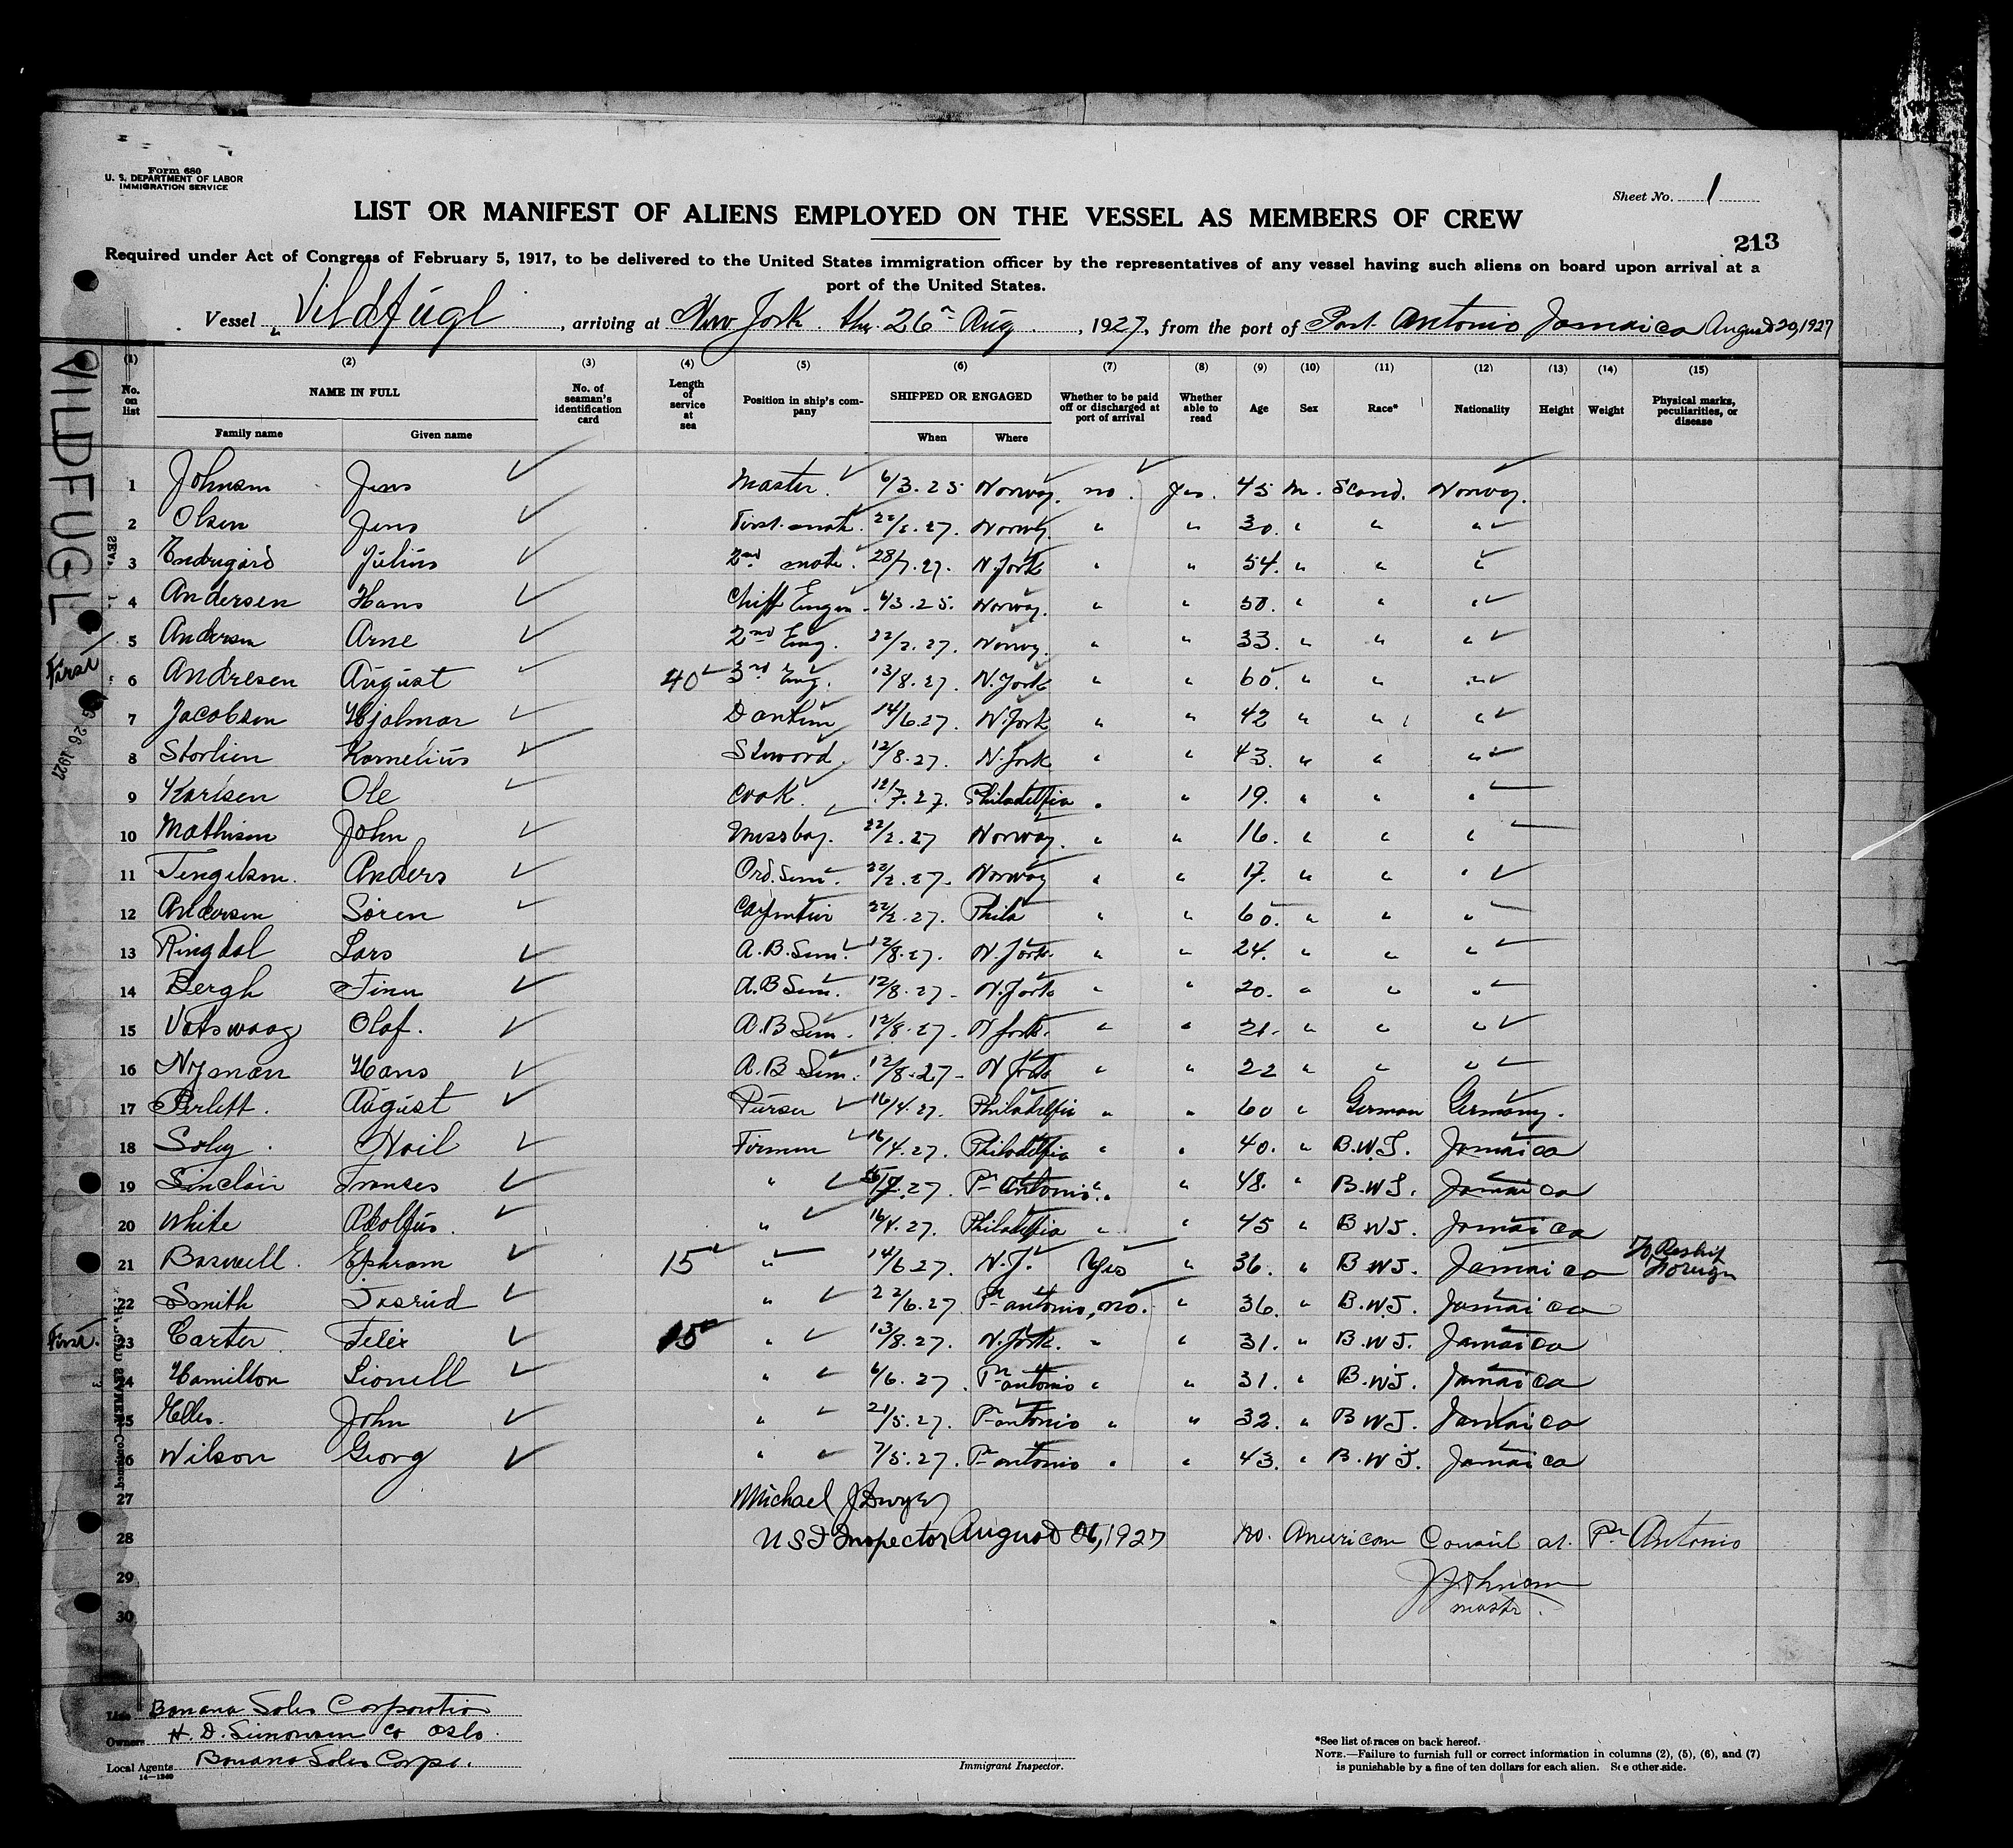 Form 680
U. S. DEPARTMENT OF LABOR
IMMIGRATION SERVICE
Sheet No. 1
LIST OR MANIFEST OF ALIENS EMPLOYED ON THE VESSEL AS MEMBERS OF CREW
213
Required under Act of Congress of February 5, 1917, to be delivered to the United States immigration officer by the representatives of any vessel having such aliens on board upon arrival at a
port of the United States.
Vessel Vildfugl, arriving at New York the 26 Aug, 1927, from the port of Port Antonio Jamaica August 20, 1927
(1) (2) (3) (4) (5) (6) (7) (8) (9) (10) (11) (12) (13) (14) (15)
No. on list NAME IN FULL Family name Given name No. of seaman's identification card Length of service at sea Position in ship's company SHIPPED OR ENGAGED When Where Whether to be paid off or discharged at port of arrival Whether able to read Age Sex Race* Nationality Height Weight Physical marks, peculiarities, or disease
1 Johnsen Jens Master 6/3.25 Norway. no. Yes. 45 M. Scand. Norway.
2 Olsen Jens First mate 22/2.27. Norway " " 30. " " "
3 Julius 2nd mate. 28/7.27. N. York " " 54. " " "
4 Andersen Hans Chiff Engin 6/3.25. Norway. " " 50. " " "
5 Andersen Arne 2nd Eng. 22/2.27. Norway. " " 33. " " "
First 6 Andresen August 40 3rd Eng. 13/8.27. N. York " " 60. " " "
7 Jacobsen Hjalmar 14/6.27. N. York " " 42 " " "
8 Storlien Kornelius Steward. 12/8.27. N. York " " 43. " " "
9 Karlsen Ole Cook. 12/7.27. Philadelfia " " 19. " " "
10 Mathisen John Messboy. 22/2.27 Norway. " " 16. " " "
11 Tengilsen. Anders Ord. Sem. 22/2.27. Norway " " 17. " " "
12 Andersen Sören Carpenter 22/2.27. Phila " " 60. " " "
13 Ringdal Lars A. B. Sem. 12/8.27. N. York. " " 24. " " "
14 Bergh Finn A. B Sem. 12/8.27. N. York " " 20. " " "
15 Olaf. A. B Sem. 12/8.27. N York. " " 21. " " "
16 Nyman Hans A. B Sem. 12/8.27. N York " " 22 " " "
17 Perlett. August 16/4.27. Philadelfia " " 60 " German Germany.
18 Firemen 16/4.27. Philadelfia " " 40. " B.W.I. Jamaica
19 Sinclair Franses " 27. Pr Antonio. " " 48. " B.W.I. Jamaica
20 White Adolfus. " 16/4.27. Philadelfia " " 45 " B W I. Jamaica
21 Baswell. Ephram 15 " 14/6 27. N. Y. Yes " 36. " B W I. Jamaica To Reship Foreign
22 Smith " 22/6.27. Pr antonio, no. " 36. " B.W.I. Jamaica
First. 23 Carter. Felix 15 " 13/8.27. N. York. " " 31. " B W I. Jamaica
24 Hamilton Lionell " 6/6.27. Pr antonio " " 31. " B.W.I. Jamaica
25 Elles. John " 21/5.27. Pr antonio " " 32. " B W I. Jamaica
26 Wilson Georg " 7/5.27. Pr antonio " " 43. " B.W.I. Jamaica
27 Michael J Dwyer
28 U S I Inspector August 26, 1927 No. American Consul at. Pr Antonio
29 J Johnsen
30 mastr.
VILDFUGL
Line Banana Sales Corporation
Owners H. D. Simonsen Co Oslo.
Local Agents Banana Sales Corp.
14—1240
Immigrant Inspector.
*See list of races on back hereof.
NOTE.—Failure to furnish full or correct information in columns (2), (5), (6), and (7)
is punishable by a fine of ten dollars for each alien. See other side.